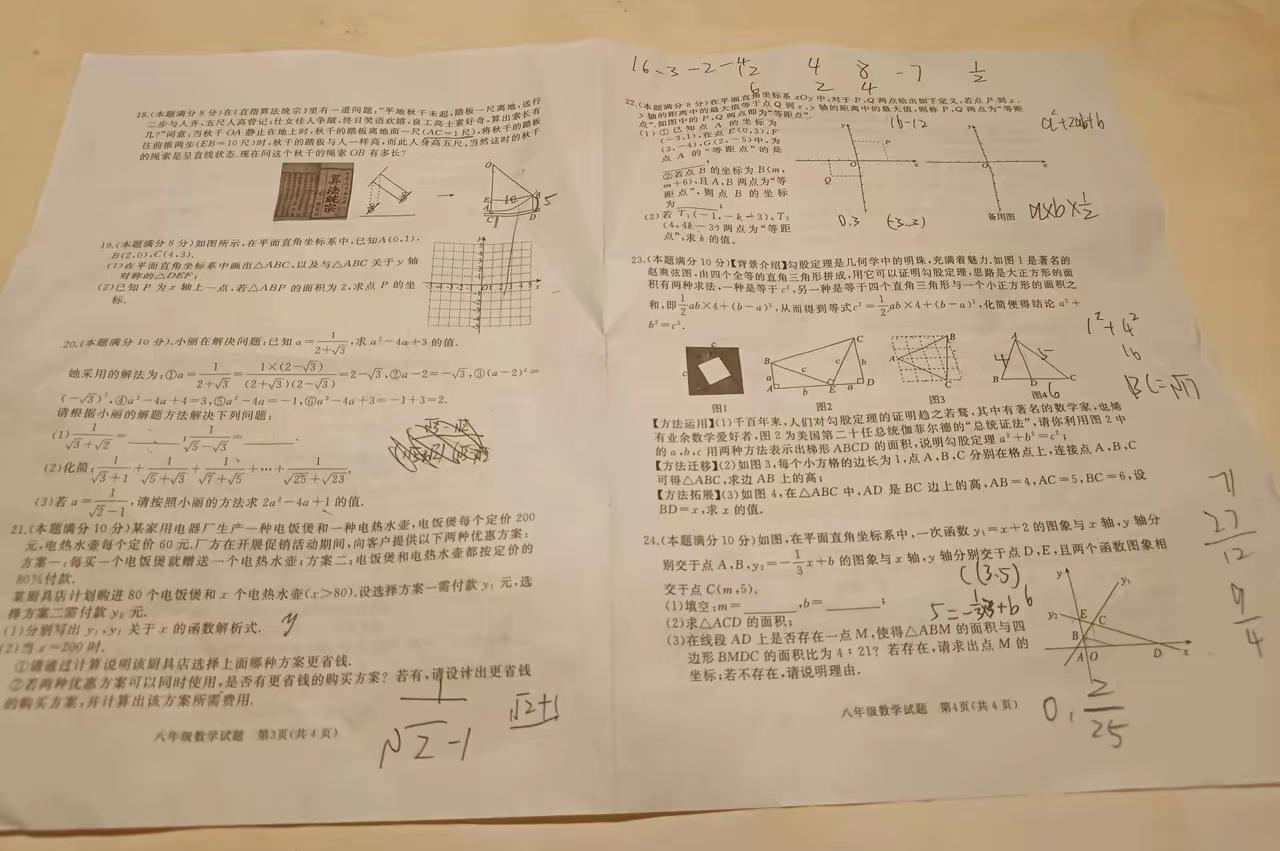 18.(本题满分8分)在《直指算法统宗》里有一道问题:“平地秋千未起,踏板一尺离地,送行
二步与人齐,五尺人高曾记;仕女佳人争蹴,终日笑语欢嬉,良工高士素好奇,算出索长有
几?”词意:当秋千OA静止在地上时,秋千的踏板离地面一尺(AC=1尺),将秋千的踏板
往前推两步(EB=10尺)时,秋千的踏板与人一样高,而此人身高五尺,当然这时的秋千
的绳索是呈直线状态.现在问这个秋千的绳索OB有多长?
算法统宗
O
E
A
C
B
D
10
5
1
19.(本题满分8分)如图所示,在平面直角坐标系中,已知A(0,1),
B(2,0),C(4,3).
(1)在平面直角坐标系中画出△ABC,以及与△ABC关于y轴
对称的△DEF;
(2)已知P为x轴上一点,若△ABP的面积为2,求点P的坐
标.
20.(本题满分10分).小丽在解决问题:已知a=1/(2+√3),求a²-4a+3的值.
她采用的解法为:①a=1/(2+√3)=1×(2-√3)/((2+√3)(2-√3))=2-√3,②a-2=-√3,③(a-2)²=
(-√3)²,④a²-4a+4=3,⑤a²-4a=-1,⑥a²-4a+3=-1+3=2.
请根据小丽的解题方法解决下列问题:
(1)1/(√3+√2)=______;1/(√5-√3)=______.
(2)化简:1/(√3+1)+1/(√5+√3)+1/(√7+√5)+…+1/(√25+√23).
(3)若a=1/(√2-1),请按照小丽的方法求2a²-4a+1的值.
21.(本题满分10分)某家用电器厂生产一种电饭煲和一种电热水壶,电饭煲每个定价200
元,电热水壶每个定价60元.厂方在开展促销活动期间,向客户提供以下两种优惠方案:
方案一:每买一个电饭煲就赠送一个电热水壶;方案二:电饭煲和电热水壶都按定价的
80%付款.
某厨具店计划购进80个电饭煲和x个电热水壶(x>80).设选择方案一需付款y₁元,选
择方案二需付款y₂元.
(1)分别写出y₁,y₂关于x的函数解析式.
y
(2)当x=200时.
①请通过计算说明该厨具店选择上面哪种方案更省钱.
②若两种优惠方案可以同时使用,是否有更省钱的购买方案?若有,请设计出更省钱
的购买方案,并计算出该方案所需费用.
1/(√2-1)
√2+1
八年级数学试题 第3页(共4页)
16-3-2-4/2 4 8 -7 1/2
6 2 4
22.(本题满分8分)在平面直角坐标系xOy中,对于P,Q两点给出如下定义:若点P到x、
y轴的距离中的最大值等于点Q到x、y轴的距离中的最大值,则称P,Q两点为“等距
点”.如图中的P,Q两点即为“等距点”.
(1)①已知点A的坐标为
(-3,1),在点E(0,3),F
(3,-4),G(2,-5)中,为
点A的“等距点”的是
______;
②若点B的坐标为B(m,
m+6),且A,B两点为“等
距点”,则点B的坐标
为______;
(2)若T₁(-1,-k-3),T₂
(4,4k-3)两点为“等距
点”,求k的值.
y
P
O
x
Q
备用图
16-12
a²+2ab+b
a×b×1/2
0.3
(-3.3)
23.(本题满分10分)【背景介绍】勾股定理是几何学中的明珠,充满着魅力.如图1是著名的
赵爽弦图,由四个全等的直角三角形拼成,用它可以证明勾股定理,思路是大正方形的面
积有两种求法,一种是等于c²,另一种是等于四个直角三角形与一个小正方形的面积之
和,即1/2ab×4+(b-a)²,从而得到等式c²=1/2ab×4+(b-a)²,化简便得结论a²+
b²=c².
1²+4²
16
BC=√17
图1
图2
图3
图4
4
5
6
【方法运用】(1)千百年来,人们对勾股定理的证明趋之若鹜,其中有著名的数学家,也烯
有业余数学爱好者,图2为美国第二十任总统伽菲尔德的“总统证法”,请你利用图2中
的a,b,c用两种方法表示出梯形ABCD的面积,说明勾股定理a²+b²=c²;
【方法迁移】(2)如图3,每个小方格的边长为1,点A,B,C分别在格点上,连接点A,B,C
可得△ABC,求边AB上的高;
【方法拓展】(3)如图4,在△ABC中,AD是BC边上的高,AB=4,AC=5,BC=6,设
BD=x,求x的值.
27/12
9/4
24.(本题满分10分)如图,在平面直角坐标系中,一次函数y₁=x+2的图象与x轴,y轴分
别交于点A,B,y₂=-1/3x+b的图象与x轴,y轴分别交于点D,E,且两个函数图象相
交于点C(m,5).
C(3.5)
(1)填空:m=______,b=______;
(2)求△ACD的面积;
(3)在线段AD上是否存在一点M,使得△ABM的面积与四
边形BMDC的面积比为4∶21?若存在,请求出点M的
坐标;若不存在,请说明理由.
y
y₁
y₂
E
C
B
A
O
D
x
0.
2/25
八年级数学试题 第4页(共4页)